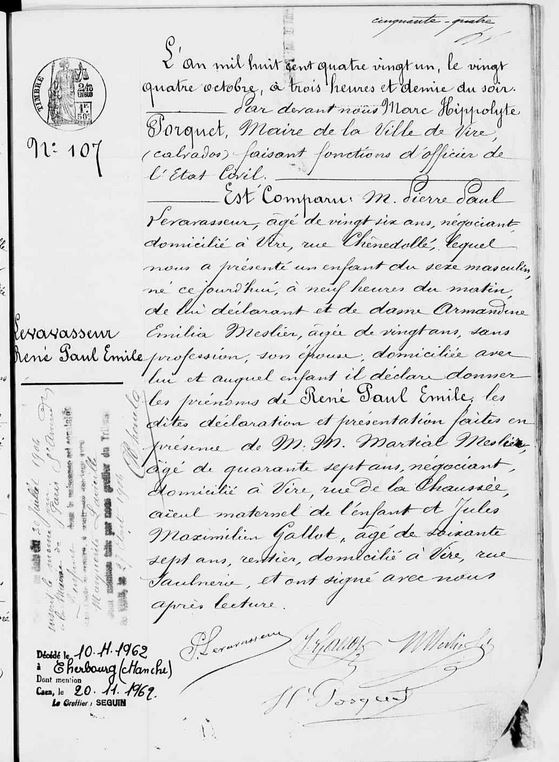 cinquante-quatre
TIMBRE
N° 107
L'An mil huit cent quatre vingt un, le vingt
quatre octobre, à trois heures et demie du soir.
Par devant nous Marc Hippolyte
Porquet, Maire de la Ville de Vire
(calvados) faisant fonctions d'officier de
l'Etat Civil.
Est Comparu: M. Pierre Paul
Levavasseur, âgé de vingt six ans, négociant,
domicilié à Vire, rue Chênedollé, lequel
nous a présenté un enfant du sexe masculin,
né ce jourd'hui, à neuf heures du matin,
de lui déclarant et de dame Armandine
Emilia Meslier, âgée de vingt ans, sans
profession, son épouse, domiciliée avec
lui et auquel enfant il déclare donner
les prénoms de René Paul Emile, les
dites déclaration et présentation faites en
présence de M.M. Martial Meslier,
âgé de quarante sept ans, négociant,
domicilié à Vire, rue de la Chaussée
aïeul maternel de l'enfant et Jules
Maximilien Gallot, âgé de soixante
sept ans, rentier, domicilié à Vire, rue
Saulnerie, et ont signé avec nous
après lecture.
Levavasseur
René Paul Emile
P. Levavasseur
H Porquet
Décédé le 10.11.1962
à Cherbourg (Manche)
Dont mention
Caen, le 20.11.1962.
Le Greffier: SEGUIN